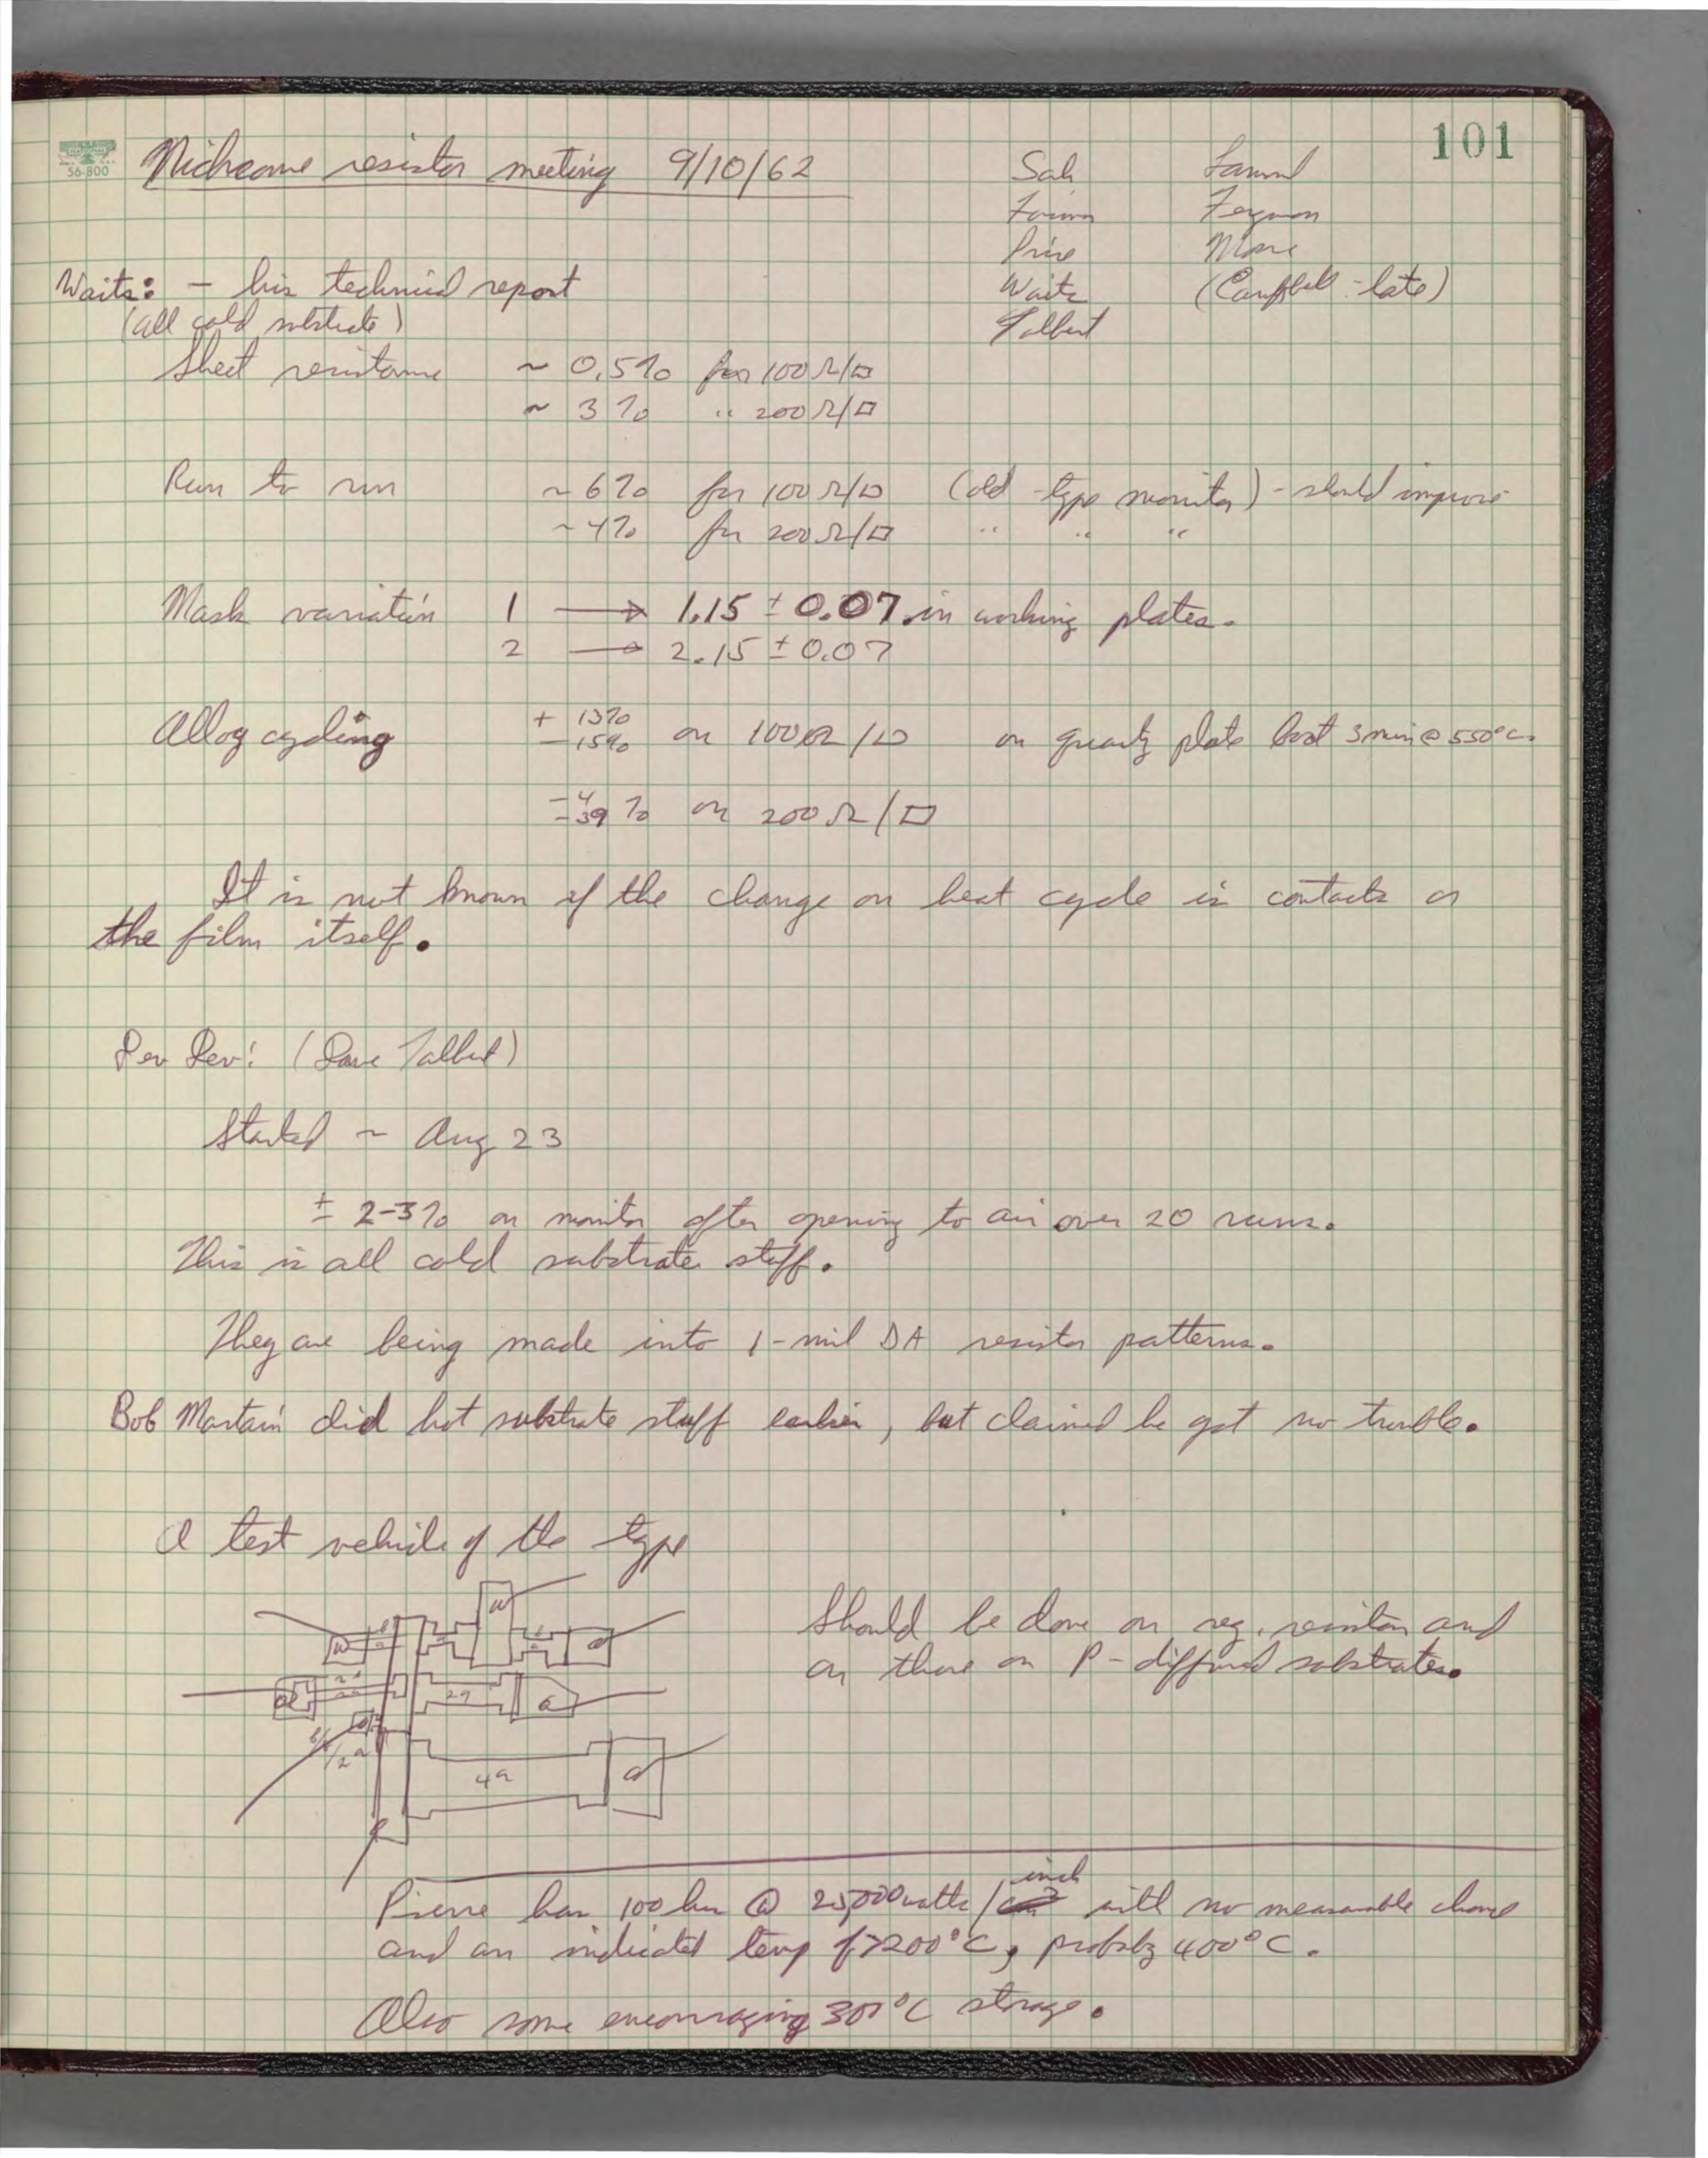 101
56-800
Nichrome resistor meeting 9/10/62
Sah
Ferguson
Price
Waits
(Campbell - late)
Talbert
Waits: - his technical report
(all cold substrate)
Sheet resistance ~ 0.5% for 100 Ω/□
~ 3% " 200 Ω/□
Run to run ~6% for 100 Ω/□ (old-type monitor) - should improve
~4% for 200 Ω/□ " " "
Mask variation 1 → 1.15 ± 0.07 in working plates.
2 → 2.15 ± 0.07
Alloy cycling + 13%
- 15% on 100 Ω/□ on quartz plate 3 min @ 550°C.
-4
-39 % on 200 Ω/□
It is not known if the change on heat cycle is contacts or
the film itself.
Dev Dev: (Dave Talbert)
Started ~ Aug 23
± 2-3% on monitor after opening to air over 20 runs.
This is all cold substrate stuff.
They are being made into 1-mil DA resistor patterns.
Bob Martain did hot substrate stuff earlier, but claimed he got no trouble.
A test vehicle of the type
Should be done on reg. resistors and
on those on P-diffused substrates.
2a
a
4a
a
Pierre has 100 hrs @ 25,000 watts/inch with no measurable change
and an indicated temp of >200°C, probably 400°C.
Also some encouraging 300°C storage.